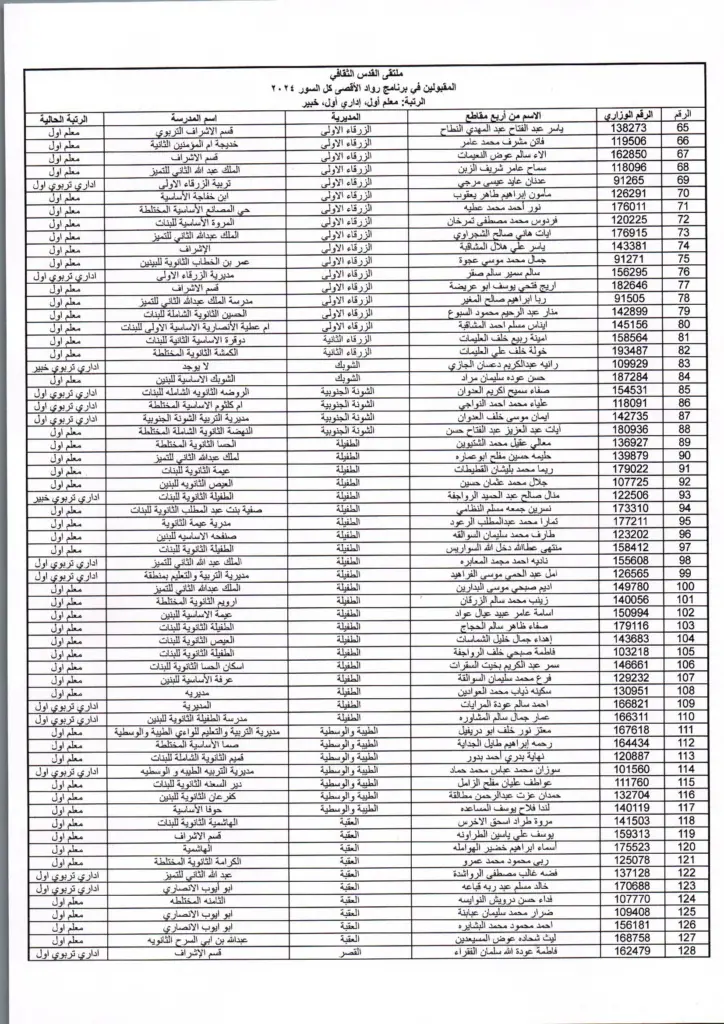 ملتقى القدس الثقافي
المقبولين في برنامج رواد الأقصى كل السور ٢٠٢٤
الرتبة: معلم أول، إداري أول، خبير
الرقم الرقم الوزاري الاسم من أربع مقاطع المديرية اسم المدرسة الرتبة الحالية
65 138273 ياسر عبد الفتاح عبد المهدي النطاح الزرقاء الاولى قسم الاشراف التربوي معلم اول
66 119506 فاتن مشرف محمد عامر الزرقاء الاولى خديجة ام المؤمنين الثانية معلم اول
67 162850 الاء سالم عوض النعيمات الزرقاء الاولى قسم الاشراف معلم اول
68 118096 سماح عامر شريف الزبن الزرقاء الاولى الملك عبد الله الثاني للتميز معلم اول
69 91265 عدنان عايد عيسى مرجي الزرقاء الاولى تربية الزرقاء الاولى اداري تربوي اول
70 126291 مأمون إبراهيم طاهر يعقوب الزرقاء الاولى ابن خفاجة الأساسية معلم اول
71 176011 نور أحمد محمد عطيه الزرقاء الاولى حي المصانع الأساسية المختلطة معلم اول
72 120225 فردوس محمد مصطفى تمرخان الزرقاء الاولى المروة الاساسية للبنات معلم اول
73 176915 ايات هاني صالح الشجراوي الزرقاء الاولى الملك عبدالله الثاني للتميز معلم اول
74 143381 ياسر علي هلال المشاقبة الزرقاء الاولى الإشراف معلم اول
75 91271 جمال محمد موسى عجوة الزرقاء الاولى عمر بن الخطاب الثانوية للبينين معلم اول
76 156295 سالم سمير سالم صقر الزرقاء الاولى مديرية الزرقاء الاولى اداري تربوي اول
77 182646 اريج فتحي يوسف ابو عريضة الزرقاء الاولى قسم الاشراف معلم اول
78 91505 ربا ابراهيم صالح المغير الزرقاء الاولى مدرسة الملك عبدالله الثاني للتميز معلم اول
79 142899 منار عبد الرحيم محمود السبوع الزرقاء الاولى الحسين الثانوية الشاملة للبنات معلم اول
80 145156 ايناس مسلم احمد المشاقبة الزرقاء الاولى ام عطية الأنصارية الاساسية الاولى للبنات معلم اول
81 158564 امينة ربيع خلف العليمات الزرقاء الثانية دوقرة الاساسية الثانية للبنات معلم اول
82 193487 خولة خلف علي العليمات الزرقاء الثانية الكمشة الثانوية المختلطة معلم اول
83 109929 رانيه عبدالكريم دعسان الجازي الشوبك لا يوجد اداري تربوي خبير
84 187284 حسن عوده سليمان مراد الشوبك الشوبك الاساسية للبنين معلم اول
85 154531 صفاء سميح اكريم العدوان الشونة الجنوبية الروضه الثانويه الشامله للبنات اداري تربوي اول
86 118091 علياء محمد احمد النواجي الشونة الجنوبية ام كلثوم الاساسية المختلطة اداري تربوي اول
87 142735 ايمان موسى خلف العدوان الشونة الجنوبية مديرية التربية الشونة الجنوبية اداري تربوي اول
88 180936 آيات عبد العزيز عبد الفتاح حسن الشونة الجنوبية النهضة الثانوية الشاملة المختلطة معلم اول
89 136927 معالي عقيل محمد الشتيوين الطفيلة الحسا الثانوية المختلطة معلم اول
90 139879 حليمه حسين مفلح ابوعماره الطفيلة لملك عبدالله الثاني للتميز معلم اول
91 179022 ريما محمد بليشان القطيطات الطفيلة عيمة الثانوية للبنات معلم اول
92 107725 جلال محمد عثمان حسين الطفيلة العيص الثانويه للبنين معلم اول
93 122506 منال صالح عبد الحميد الرواجفة الطفيلة الطفيلة الثانوية للبنات اداري تربوي خبير
94 173310 نسرين جمعه مسلم النظامي الطفيلة صفية بنت عبد المطلب الثانوية للبنات معلم اول
95 177211 تمارا محمد عبدالمطلب الرعود الطفيلة مدرية عيمة الثانوية معلم اول
96 123202 طارف محمد سليمان السوالقه الطفيلة صنفحه الاساسيه للبنين معلم اول
97 158412 منتهى عطاالله دخل الله السواريس الطفيلة الطفيلة الثانوية للبنات معلم اول
98 155608 ناديه احمد محمد المعابره الطفيلة الملك عبد الله الثاني للتميز اداري تربوي اول
99 126565 امل عبد الحمي موسى الفراهيد الطفيلة مديرية التربية والتعليم بمنطقة اداري تربوي اول
100 149780 اديم صبحي موسى البدارين الطفيلة الملك عبدالله الثاني للتميز معلم اول
101 140056 زينب محمد سالم الزرقان الطفيلة ارويم الثانوية المختلطة معلم اول
102 150994 اسامة عامر عبيد عيال عواد الطفيلة عيمة الاساسية للبنين معلم اول
103 179116 صفاء ظاهر سالم الحجاج الطفيلة الطفيلة الثانوية للبنات معلم اول
104 143683 إهداء جمال خليل الشماسات الطفيلة العيص الثانوية للبنات معلم اول
105 103218 فاطمة صبحي خلف الرواجفة الطفيلة الطفيلة الثانوية للبنات معلم اول
106 146661 سمر عبد الكريم بخيت السقرات الطفيلة اسكان الحسا الثانوية للبنات معلم اول
107 129232 فرع محمد سليمان السوالقة الطفيلة عرفة الأساسية للبنين معلم اول
108 130951 سكينه ذياب محمد العوادين الطفيلة مديريه معلم اول
109 166821 احمد سالم عودة المرايات الطفيلة المديرية اداري تربوي اول
110 166311 عمار جمال سالم المشاوره الطفيلة مدرسة الطفيلة الثانوية للبنين اداري تربوي اول
111 167618 معتز نور خلف ابو دريفيل الطيبة والوسطية مديرية التربية والتعليم للواءي الطيبة والوسطية معلم اول
112 164434 رحمه إبراهيم طايل الجداية الطيبة والوسطية صما الأساسية المختلطة معلم اول
113 120887 نهاية بدري أحمد بدور الطيبة والوسطية قميم الثانوية الشاملة للبنات معلم اول
114 101560 سوزان محمد عباس محمد حماد الطيبة والوسطية مديرية التربيه الطيبه و الوسطيه اداري تربوي اول
115 111760 عواطف عليان مفلح الزامل الطيبة والوسطية دير السعنه الثانوية للبنات معلم اول
116 132704 حمدان عزت عبدالرحمن مطالقة الطيبة والوسطية كفرعان الثانوية للبنين معلم اول
117 140119 لندا فلاح يوسف المساعده الطيبة والوسطية حوفا الأساسية معلم اول
118 141503 مروة طراد اسحق الاخرس العقبة الهاشمية الثانوية للبنات معلم اول
119 159313 يوسف علي ياسين الطراونه العقبة قسم الاشراف معلم اول
120 175523 أسماء ابراهيم خضير الهوامله العقبة الهاشمية معلم اول
121 125078 ربى محمود محمد عمرو العقبة الكرامة الثانوية المختلطة معلم اول
122 137128 فضه غالب مصطفى الرواشدة العقبة عبد الله الثاني للتميز اداري تربوي اول
123 170688 خالد مسلم عبد ربه قباعه العقبة ابو أيوب الانصاري اداري تربوي اول
124 107770 فداء حسن درويش النوايسه العقبة الثامنه المختلطه معلم اول
125 109408 ضرار محمد سليمان عبابنة العقبة ابو ايوب الانصاري معلم اول
126 156181 احمد محمود محمد البشايره العقبة ابو ايوب الانصاري معلم اول
127 168758 ليث شحاده عوض المسيعدين العقبة عبدالله بن ابي السرح الثانويه معلم اول
128 162479 فاطمة عودة الله سلمان الفقراء القصر قسم الإشراف اداري تربوي اول